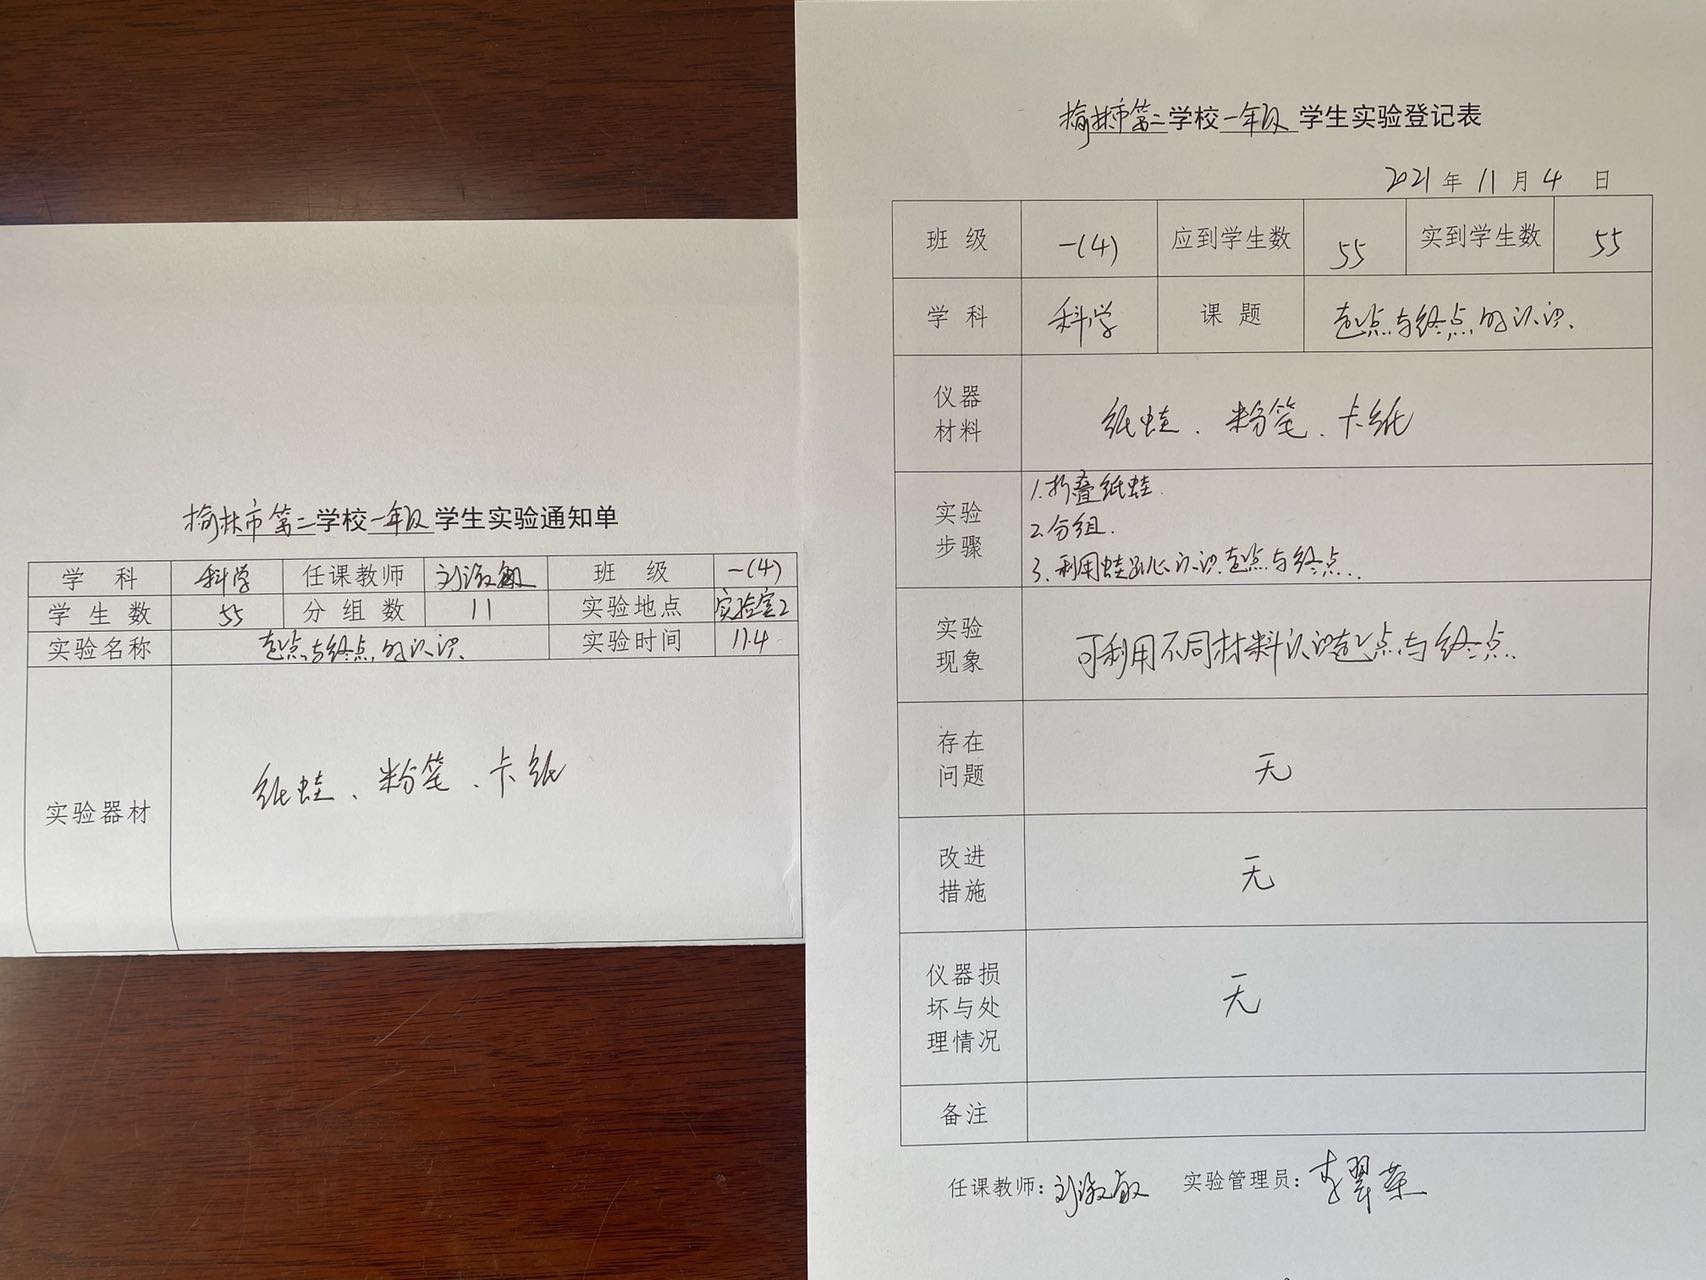 榆林市第二学校一年级学生实验通知单
学科 科学 任课教师 刘淑敏 班级 一(4)
学生数 55 分组数 11 实验地点 实验室2
实验名称 起点与终点的认识 实验时间 11.4
实验器材 纸蛙、粉笔、卡纸
榆林市第二学校一年级学生实验登记表
2021年11月4日
班级 一(4) 应到学生数 55 实到学生数 55
学科 科学 课题 起点与终点的认识.
仪器
材料
纸蛙、粉笔、卡纸
实验
步骤
1.折叠纸蛙.
2.分组.
3.利用蛙跳认识起点与终点.
实验
现象
可利用不同材料认识起点与终点.
存在
问题
无
改进
措施
无
仪器损
坏与处
理情况
无
备注
任课教师:刘淑敏 实验管理员:李翠荣